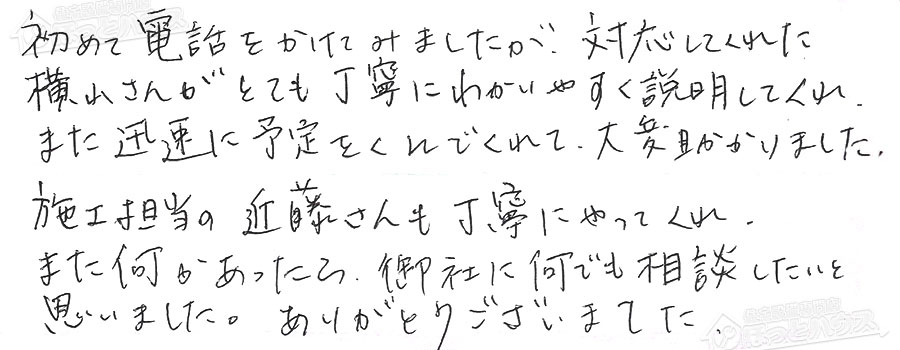 初めて電話をかけてみましたが、対応してくれた
横山さんがとても丁寧にわかいやすく説明してくれ、
また迅速に予定をくんでくれて、大変助かりました。
施工担当の近藤さんも丁寧にやってくれ、
また何かあったら、御社に何でも相談したいと
思いました。ありがとうございました。